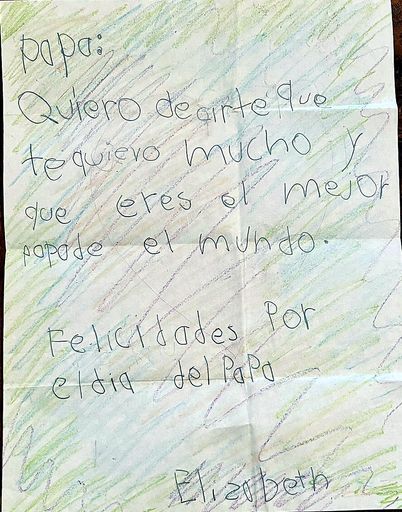 papa:
Quiero decirte que
te quiero mucho y
que eres el mejor
papa de el mundo.
Felicidades Por
el dia del PaPa
Elizabeth